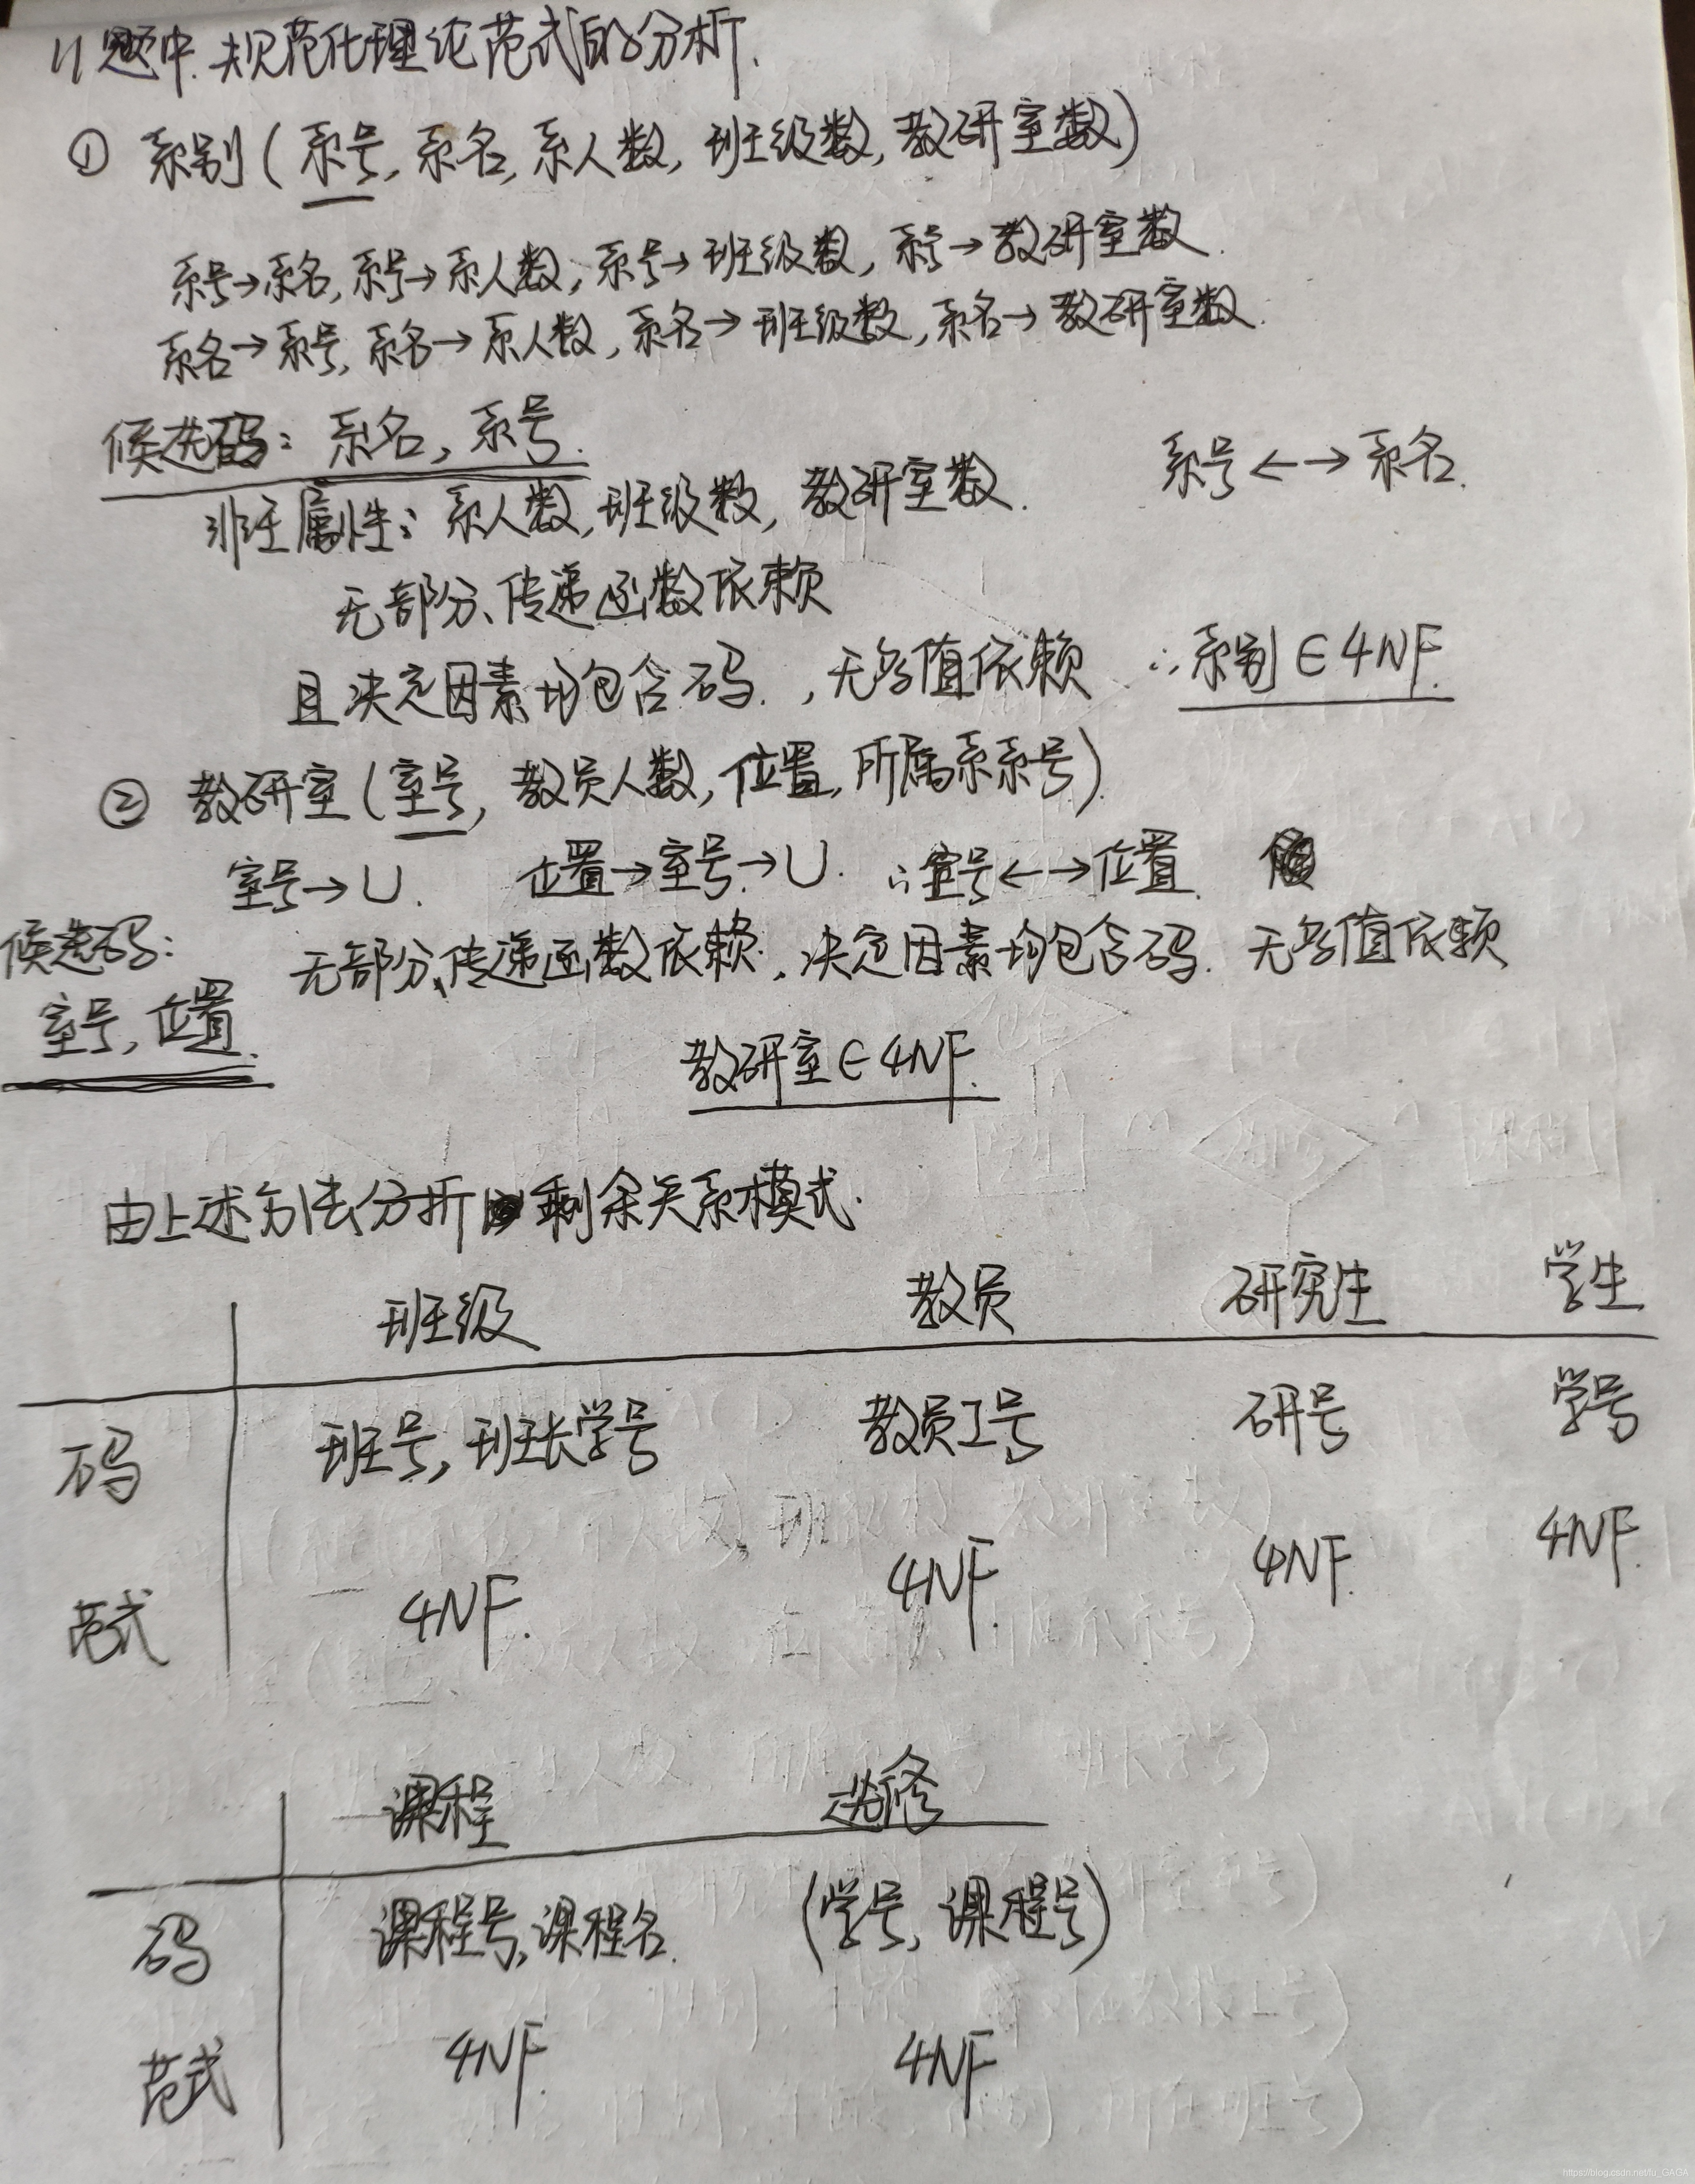 11题中.规范化理论范式的分析.
① 系别(系号,系名,系人数,班级数,教研室数)
系号→系名,系号→系人数,系号→班级数,系号→教研室数.
系名→系号,系名→系人数,系名→班级数,系名→教研室数.
候选码:系名,系号.
系号←→系名.
非主属性:系人数,班级数,教研室数.
无部分、传递函数依赖
且决定因素均包含码.,无多值依赖 ∴系别∈4NF.
② 教研室(室号,教员人数,位置,所属系系号)
室号→U. 位置→室号→U. ∴室号←→位置.
候选码:
无部分、传递函数依赖.,决定因素均包含码.无多值依赖
室号,位置.
教研室∈4NF.
由上述方法分析 剩余关系模式.
班级 教员 研究生 学生
码 班号,班长学号 教员工号 研号 学号
范式 4NF. 4NF. 4NF. 4NF.
课程 选修
码 课程号,课程名. (学号,课程号)
范式 4NF. 4NF
https://blog.csdn.net/lu_GAGA